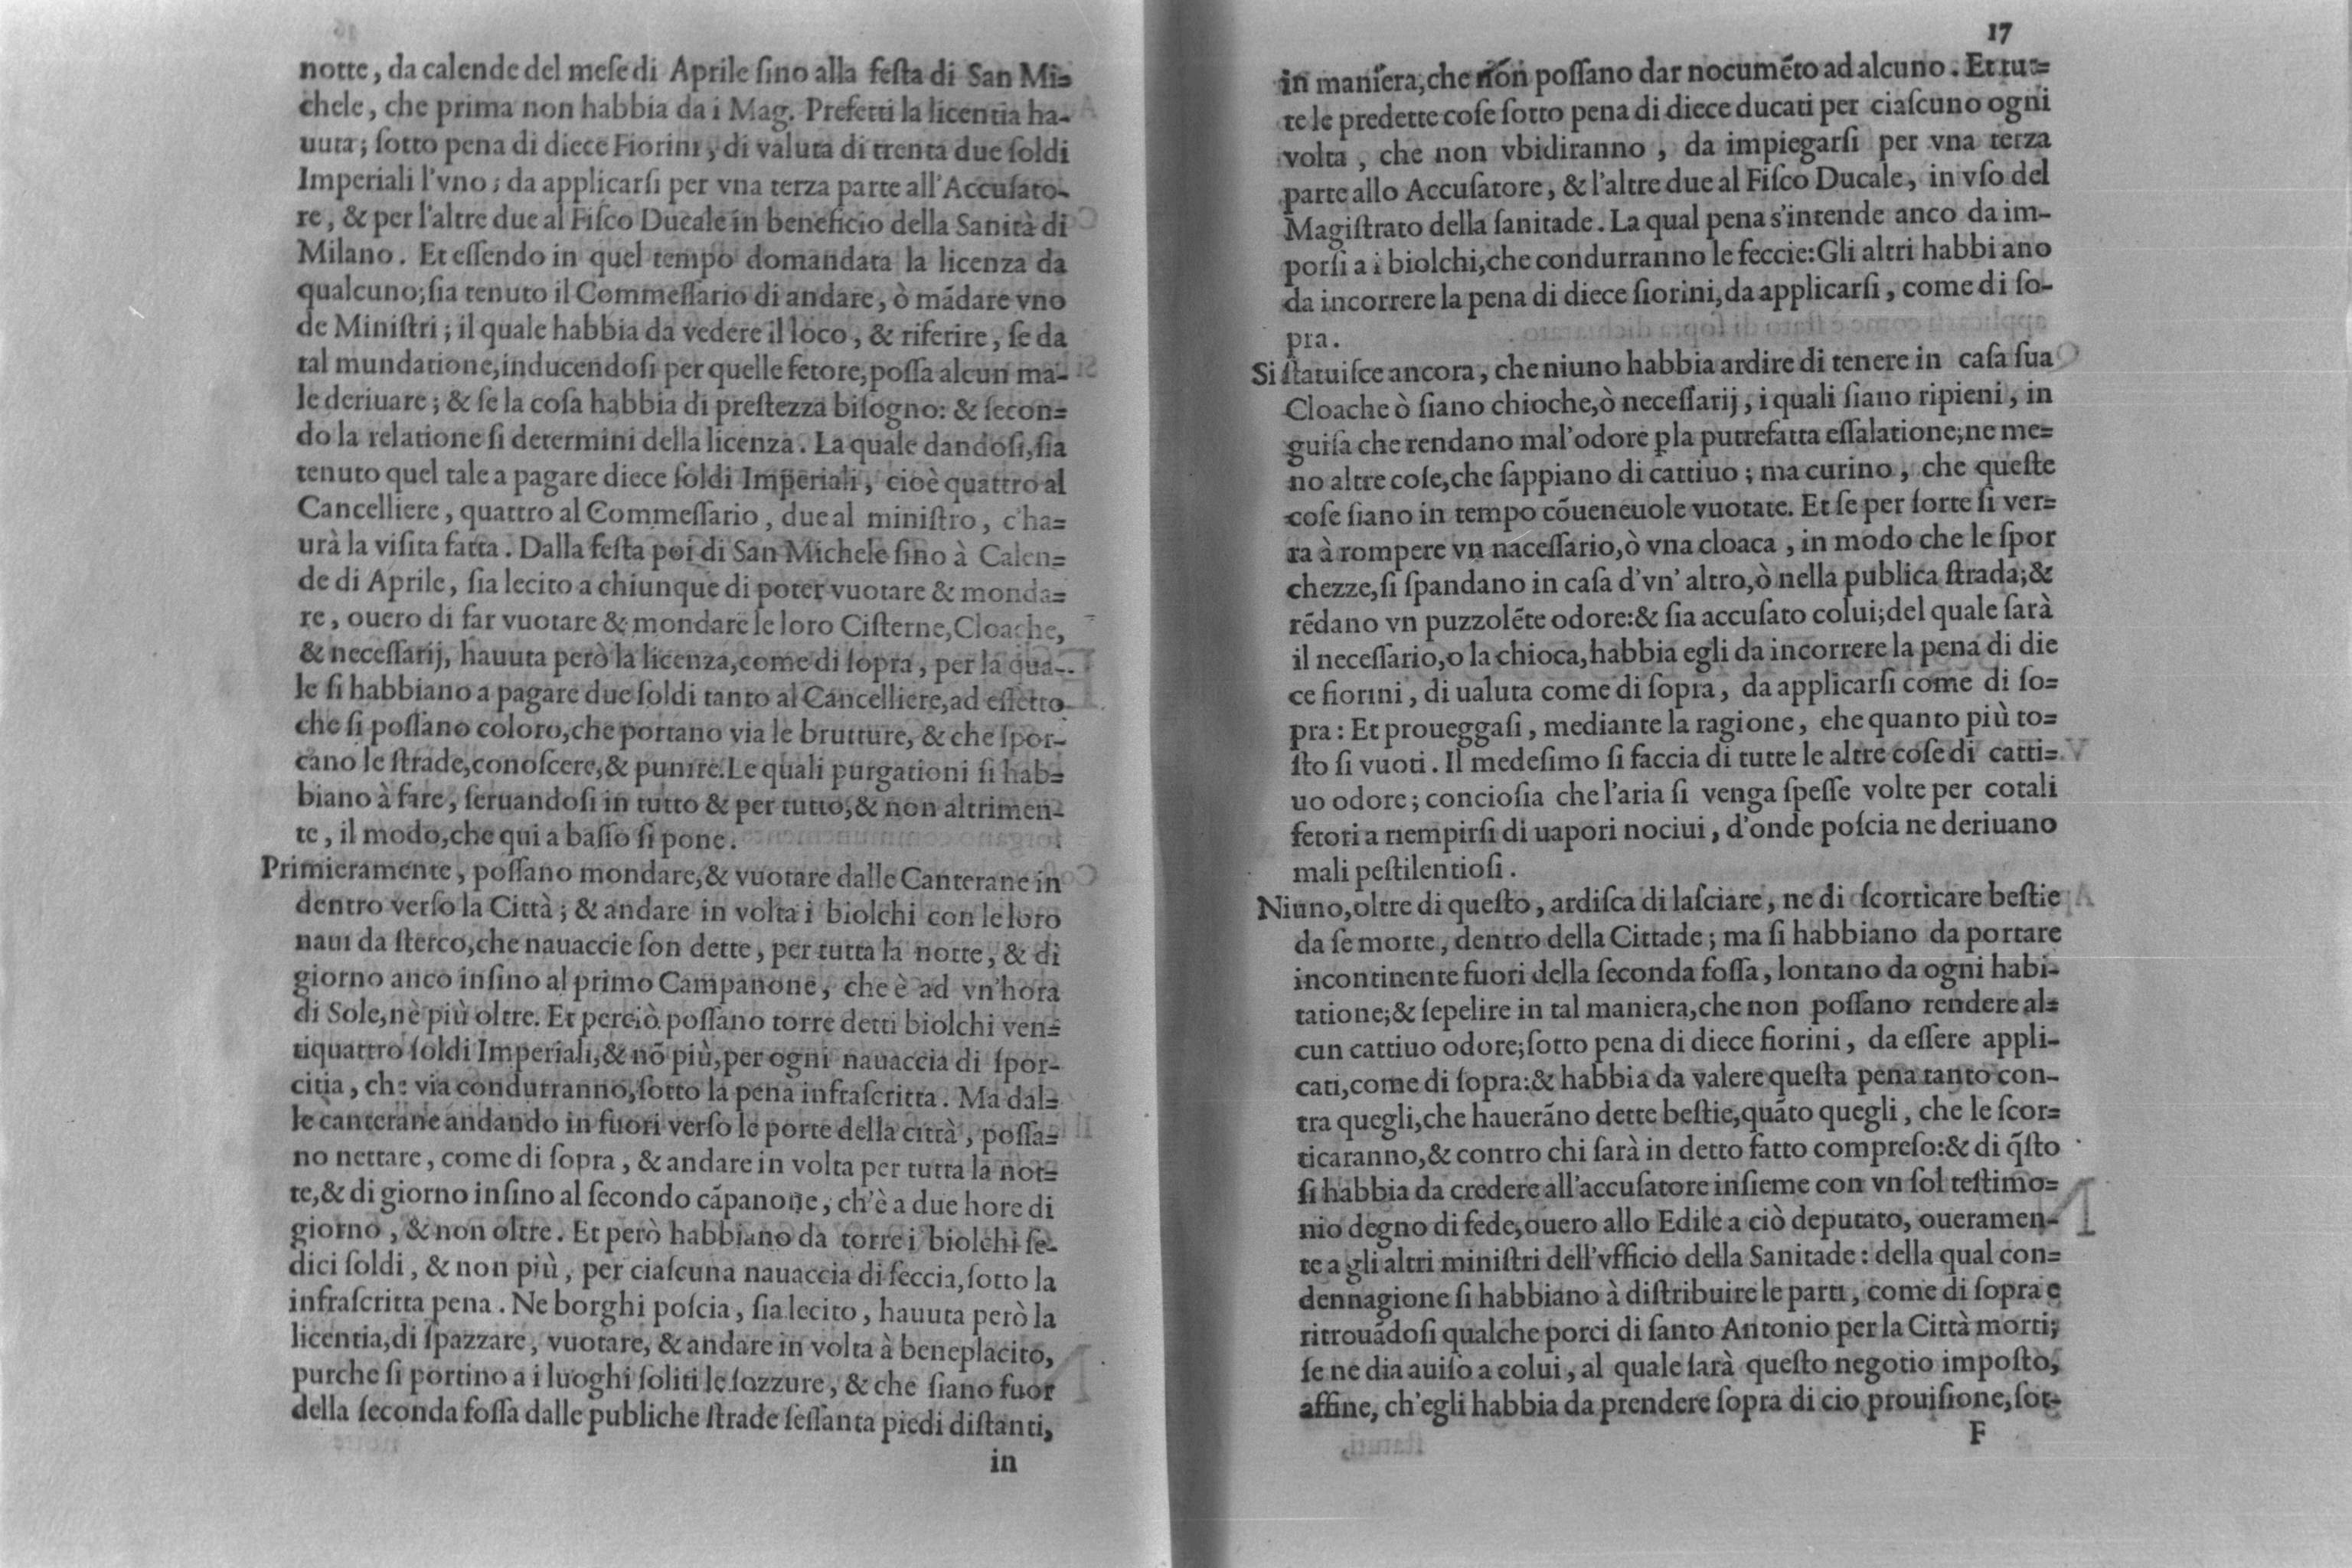 notte, da calende del mese di Aprile sino alla festa di San Mi=
chele, che prima non habbia da i Mag. Prefetti la licentia ha-
uuta; sotto pena di diece Fiorini, di valuta di trenta due soldi
Imperiali l'vno; da applicarsi per vna terza parte all'Accusato-
re, & per l'altre due al Fisco Ducale in beneficio della Sanità di
Milano. Et essendo in quel tempo domandata la licenza da
qualcuno; sia tenuto il Commessario di andare, ò mãdare vno
de Ministri; il quale habbia da vedere il loco, & riferire, se da
tal mundatione, inducendosi per quelle fetore, possa alcun ma-
le deriuare; & se la cosa habbia di prestezza bisogno: & secon=
do la relatione si determini della licenza. La quale dandosi, sia
tenuto quel tale a pagare diece soldi Imperiali, cioè quattro al
Cancelliere, quattro al Commessario, due al ministro, c'ha=
urà la visita fatta. Dalla festa poi di San Michele sino à Calen=
de di Aprile, sia lecito a chiunque di poter vuotare & monda=
re, ouero di far vuotare & mondare le loro Cisterne, Cloache,
& necessarij, hauuta però la licenza, come di sopra, per la qua-
le si habbiano a pagare due soldi tanto al Cancelliere, ad effetto
che si possano coloro, che portano via le brutture, & che spor-
cano le strade, conoscere, & punire. Le quali purgationi si hab=
biano à fare, seruandosi in tutto & per tutto, & non altrimen-
te, il modo, che qui a basso si pone.
Primieramente, possano mondare, & vuotare dalle Canterane in
dentro verso la Città; & andare in volta i biolchi con le loro
naui da sterco, che nauaccie son dette, per tutta la notte, & di
giorno anco insino al primo Campanone, che è ad vn'hora
di Sole, nè più oltre. Et perciò possano torre detti biolchi ven=
tiquattro soldi Imperiali, & nõ più, per ogni nauaccia di spor-
citia, che via condurranno, sotto la pena infrascritta. Ma dal=
le canterane andando in fuori verso le porte della città, possa=
no nettare, come di sopra, & andare in volta per tutta la not=
te, & di giorno insino al secondo cãpanone, ch'è a due hore di
giorno, & non oltre. Et però habbiano da torre i biolchi se-
dici soldi, & non più, per ciascuna nauaccia di feccia, sotto la
infrascritta pena. Ne borghi poscia, sia lecito, hauuta però la
licentia, di spazzare, vuotare, & andare in volta à beneplacito,
purche si portino a i luoghi soliti le sozzure, & che siano fuor
della seconda fossa dalle publiche strade sessanta piedi distanti,
in
17
in maniera, che non possano dar nocumẽto ad alcuno. Et tut=
te le predette cose sotto pena di diece ducati per ciascuno ogni
volta, che non vbidiranno, da impiegarsi per vna terza
parte allo Accusatore, & l'altre due al Fisco Ducale, in vso del
Magistrato della sanitade. La qual pena s'intende anco da im-
porsi a i biolchi, che condurranno le feccie: Gli altri habbi ano
da incorrere la pena di diece fiorini, da applicarsi, come di so-
pra.
Si statuisce ancora, che niuno habbia ardire di tenere in casa sua
Cloache ò siano chioche, ò necessarij, i quali siano ripieni, in
guisa che rendano mal'odore ꝑ la putrefatta essalatione; ne me=
no altre cose, che sappiano di cattiuo; ma curino, che queste
cose siano in tempo cõueneuole vuotate. Et se per sorte si ver=
ra à rompere vn nacessario, ò vna cloaca, in modo che le spor
chezze, si spandano in casa d'vn' altro, ò nella publica strada; &
rẽdano vn puzzolẽte odore: & sia accusato colui; del quale sarà
il necessario, o la chioca, habbia egli da incorrere la pena di die
ce fiorini, di ualuta come di sopra, da applicarsi come di so=
pra: Et proueggasi, mediante la ragione, ehe quanto più to=
sto si vuoti. Il medesimo si faccia di tutte le altre cose di catti=
uo odore; conciosia che l'aria si venga spesse volte per cotali
fetori a riempirsi di uapori nociui, d'onde poscia ne deriuano
mali pestilentiosi.
Niuno, oltre di questo, ardisca di lasciare, ne di scorticare bestie
da se morte, dentro della Cittade; ma si habbiano da portare
incontinente fuori della seconda fossa, lontano da ogni habi-
tatione; & sepelire in tal maniera, che non possano rendere al=
cun cattiuo odore; sotto pena di diece fiorini, da essere appli-
cati, come di sopra: & habbia da valere questa pena tanto con-
tra quegli, che hauerãno dette bestie, quãto quegli, che le scor=
ticaranno, & contro chi sarà in detto fatto compreso: & di q̃sto
si habbia da credere all'accusatore insieme con vn sol testimo=
nio degno di fede, ouero allo Edile a ciò deputato, oueramen-
te a gli altri ministri dell'vfficio della Sanitade: della qual con=
dennagione si habbiano à distribuire le parti, come di sopra e
ritrouãdosi qualche porci di santo Antonio per la Città morti;
se ne dia auiso a colui, al quale sarà questo negotio imposto,
affine, ch'egli habbia da prendere sopra di cio prouisione, sot-
F